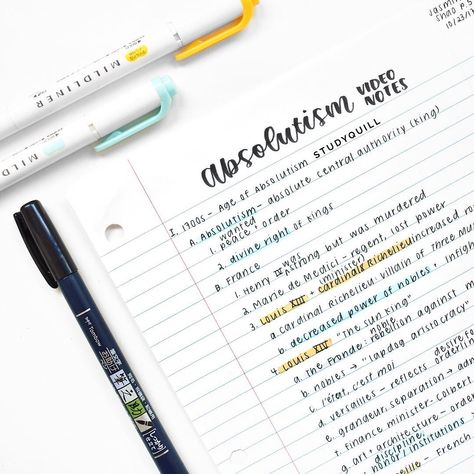 Jasmin
Shao P.5
10/23/17
MILDLINER
MILDLINER
Tombow
absolutism VIDEO NOTES
STUDYQUILL
I. 1700s - Age of absolutism
A. Absolutism - absolute central authority (king)
1. wanted peace + order
2. divine right of kings
B. France
1. Henry IV was strong but was murdered
2. Marie de Medici - regent, lost power
3. Louis XIII + cardinal Richelieu (minister) increased ro
a. cardinal Richelieu: villain of Three Mus
b. decreased power of nobles + infigh
4. Louis XIV "The Sun King"
a. The Fronde: noble rebellion against m
b. nobles → "lapdog aristocracy"
c. l'état, c'est moi
d. versailles - reflects desire fo orderlin
e. grandeur, separation → ad
f. finance minister - Colbert
g. art + architecture - order
discipline
honor/institutions
ville - Fren